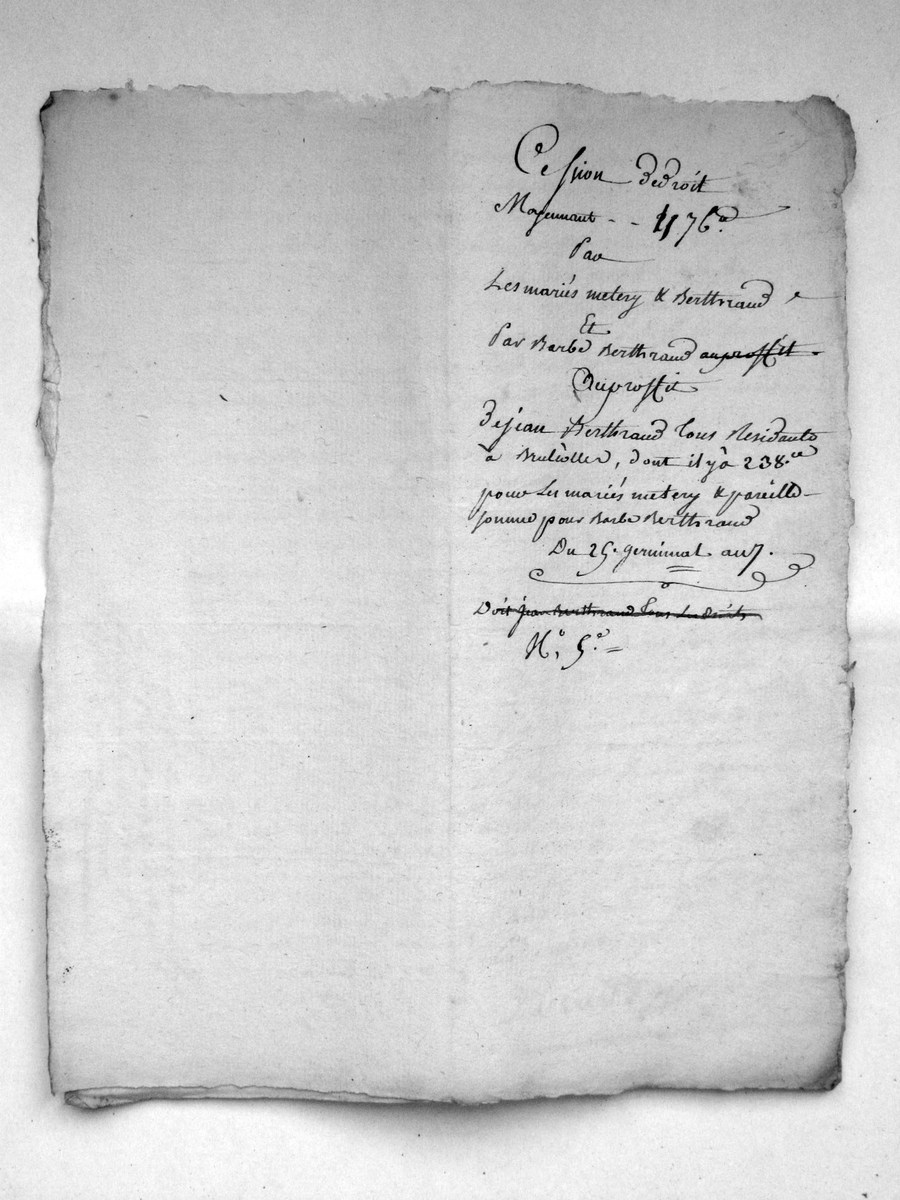 Cession dedroit
Moyennant - - 476.#
Par
Les mariés metery & Berthraud
Et
Par Barbe Berthraud auproffit
Auproffit
dejean Berthraud tous Residants
a, dont il y a 238.
pour Les mariés metery & pareille
somme pour Barbe Berthraud
Du 25. germinal an 7.
Doit jean Berthraud tous Les droits
N.° 5.e =